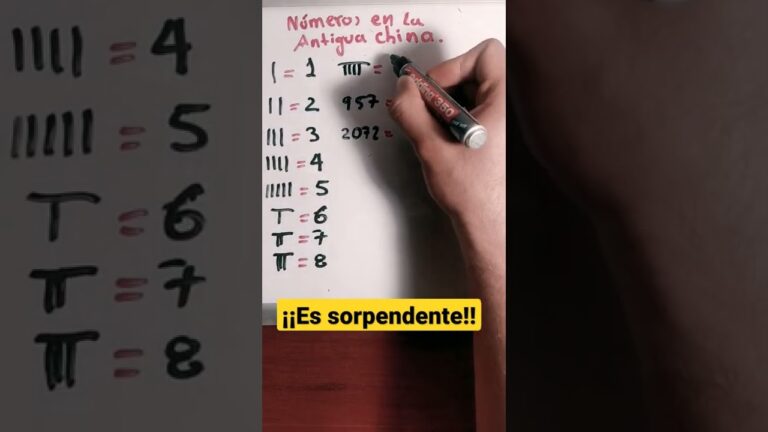 Números en la
Antigua china.
| = 1 𝍨 =
|| = 2 957 =
||| = 3 2072 =
|||| = 4
||||| = 5
𝍥 = 6
𝍦 = 7
𝍧 = 8
edding 360
¡¡Es sorpendente!!
|||| = 4
||||| = 5
𝍥 = 6
𝍦 = 7
𝍧 = 8